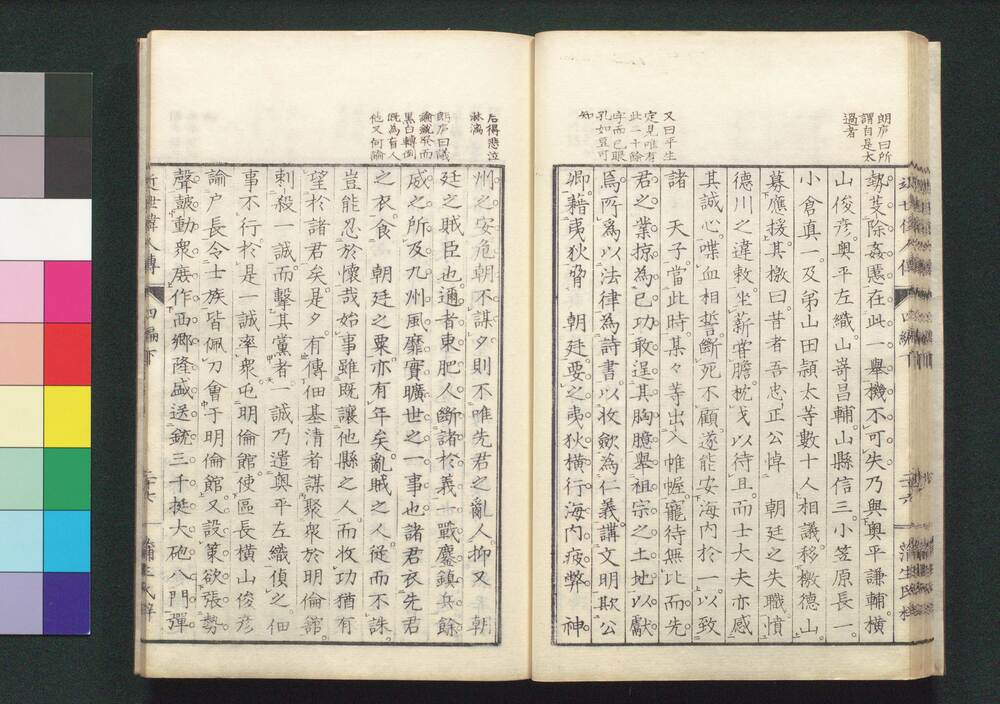 朗庐曰所
謂自是太
過者
又曰平生
定見唯有
此二十餘
字而已眼
孔如豆可
知
勢芟除姦慝在此一擧機不可失乃與奥平謙輔横
山俊彦奥平左織山嵜昌輔山縣信三小笠原長一
小倉真一及弟山田頴太等數十人相議移檄德山
募應援其檄曰昔者吾忠正公悼　朝廷之失職憤
德川之違敕坐薪嘗膽枕戈以待旦而士大夫亦感
其誠心喋血相誓斷死不顧遂能安海内於一以致
諸　天子當此時某々等出入帷幄寵待無比而先
君之業掠為已功敢逞其胸臆擧祖宗之土地以獻
爲所爲以法律為詩書以收歛為仁義講文明欺公
卿藉夷狄脅　朝廷要之夷狄横行海内疲弊　神
后得悲泣
淋漓
朗庐曰議
論鋭飛而
黒白轉倒
既為有人
他又何論
州之安危朝不謀夕則不唯先君之亂人抑又　朝
廷之賊臣也邇者東肥人斷諸於義一戰鏖鎮兵餘
威之所及九州風靡實曠世之一事也諸君衣先君
之衣食　朝廷之粟亦有年矣亂賊之人從而不誅
豈能忍於懷哉始事雖既讓他縣之人而收功猶有
望於諸君矣是夕有傳佃基清者謀聚衆於明倫館
刺殺一誠而擊其黨者一誠乃遣奥平左織偵之佃
事不行於是一誠率衆屯明倫館使區長横山俊彦
論户長令士族皆佩刀會于明倫館又設策欲張勢
聲皷動衆庻作西郷隆盛送銃三千挺大砲八門彈
近世偉人傳　四編下　二十七　蒲生氏梓